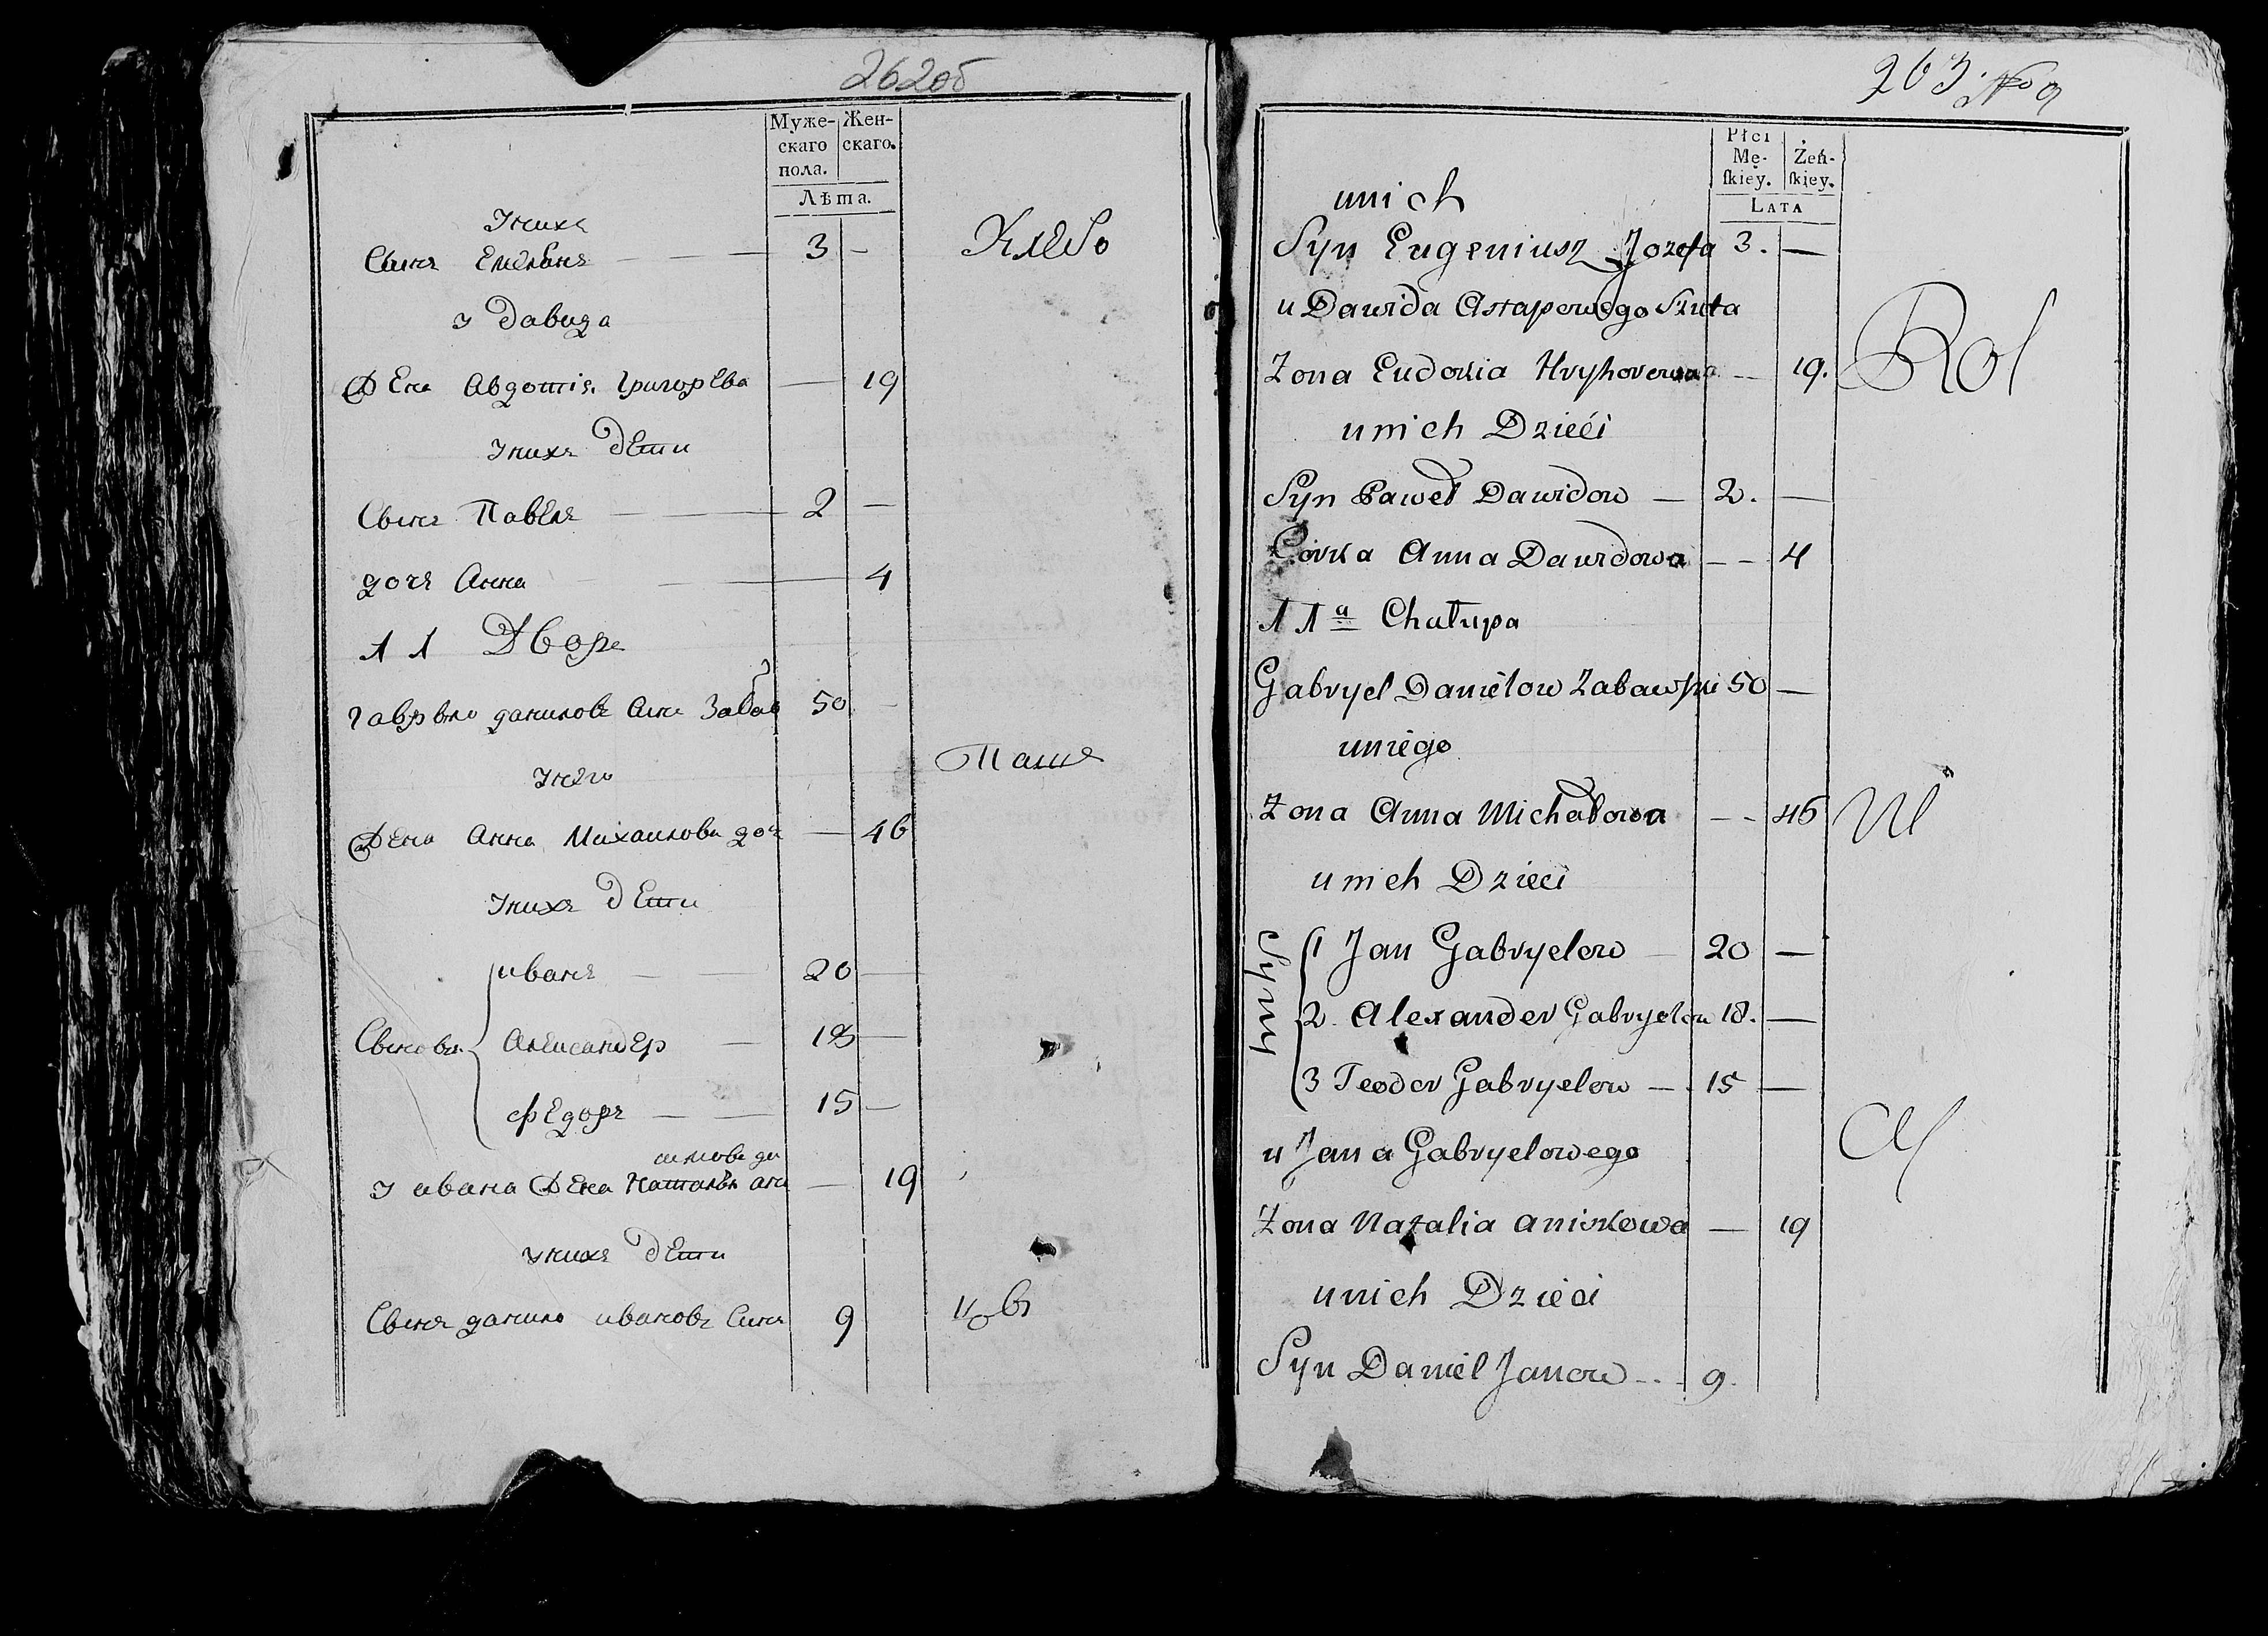 262об
Муже-
скаго
пола.
Жен-
скаго.
Лѣта.
Унихъ
Сынъ Емельянъ 3 —
Хлебо
У Давида
Жена Авдотія Григорева — 19
Унихъ дети
Сынъ Павелъ 2 —
дочь Анна — 4
11 Дворъ
Гаврыло даниловъ Синъ Забав 50 —
Унего
Паше
Жена Анна Михаилова доч — 46
Унихъ дети
Сыновья
иванъ — 20 —
Александер — 18 —
Федоръ — 15 —
У ивана Жена Наталья — 19
унихъ дети
Сынъ данило ивановъ Синъ 9
цовъ
263. No 9
Płci
Mę-
ſkiey.
Żeń-
ſkiey.
LATA
unich
Syn Eugeniusz Jozefa 3. —
u Dawida Astapowego Szuta
Zona Eudokia Hryhorowna — 19.
Rol
unich Dzieći
Syn Paweł Dawidow — 2. —
Corka Anna Dawidowa — — 4
11a Chałupa
Gabryel Daniełow Zabawſki 50 —
uniego
Zona Anna Michałowa — — 46
ni
unich Dzieci
Syny
1 Jan Gabryelow — 20 —
2. Alexander Gabryelow 18. —
3 Teodor Gabryelow — 15 —
u Jana Gabryelowego
Zona Natalia Aniskowa — 19
unich Dzieci
Syn Daniel Janow 9.